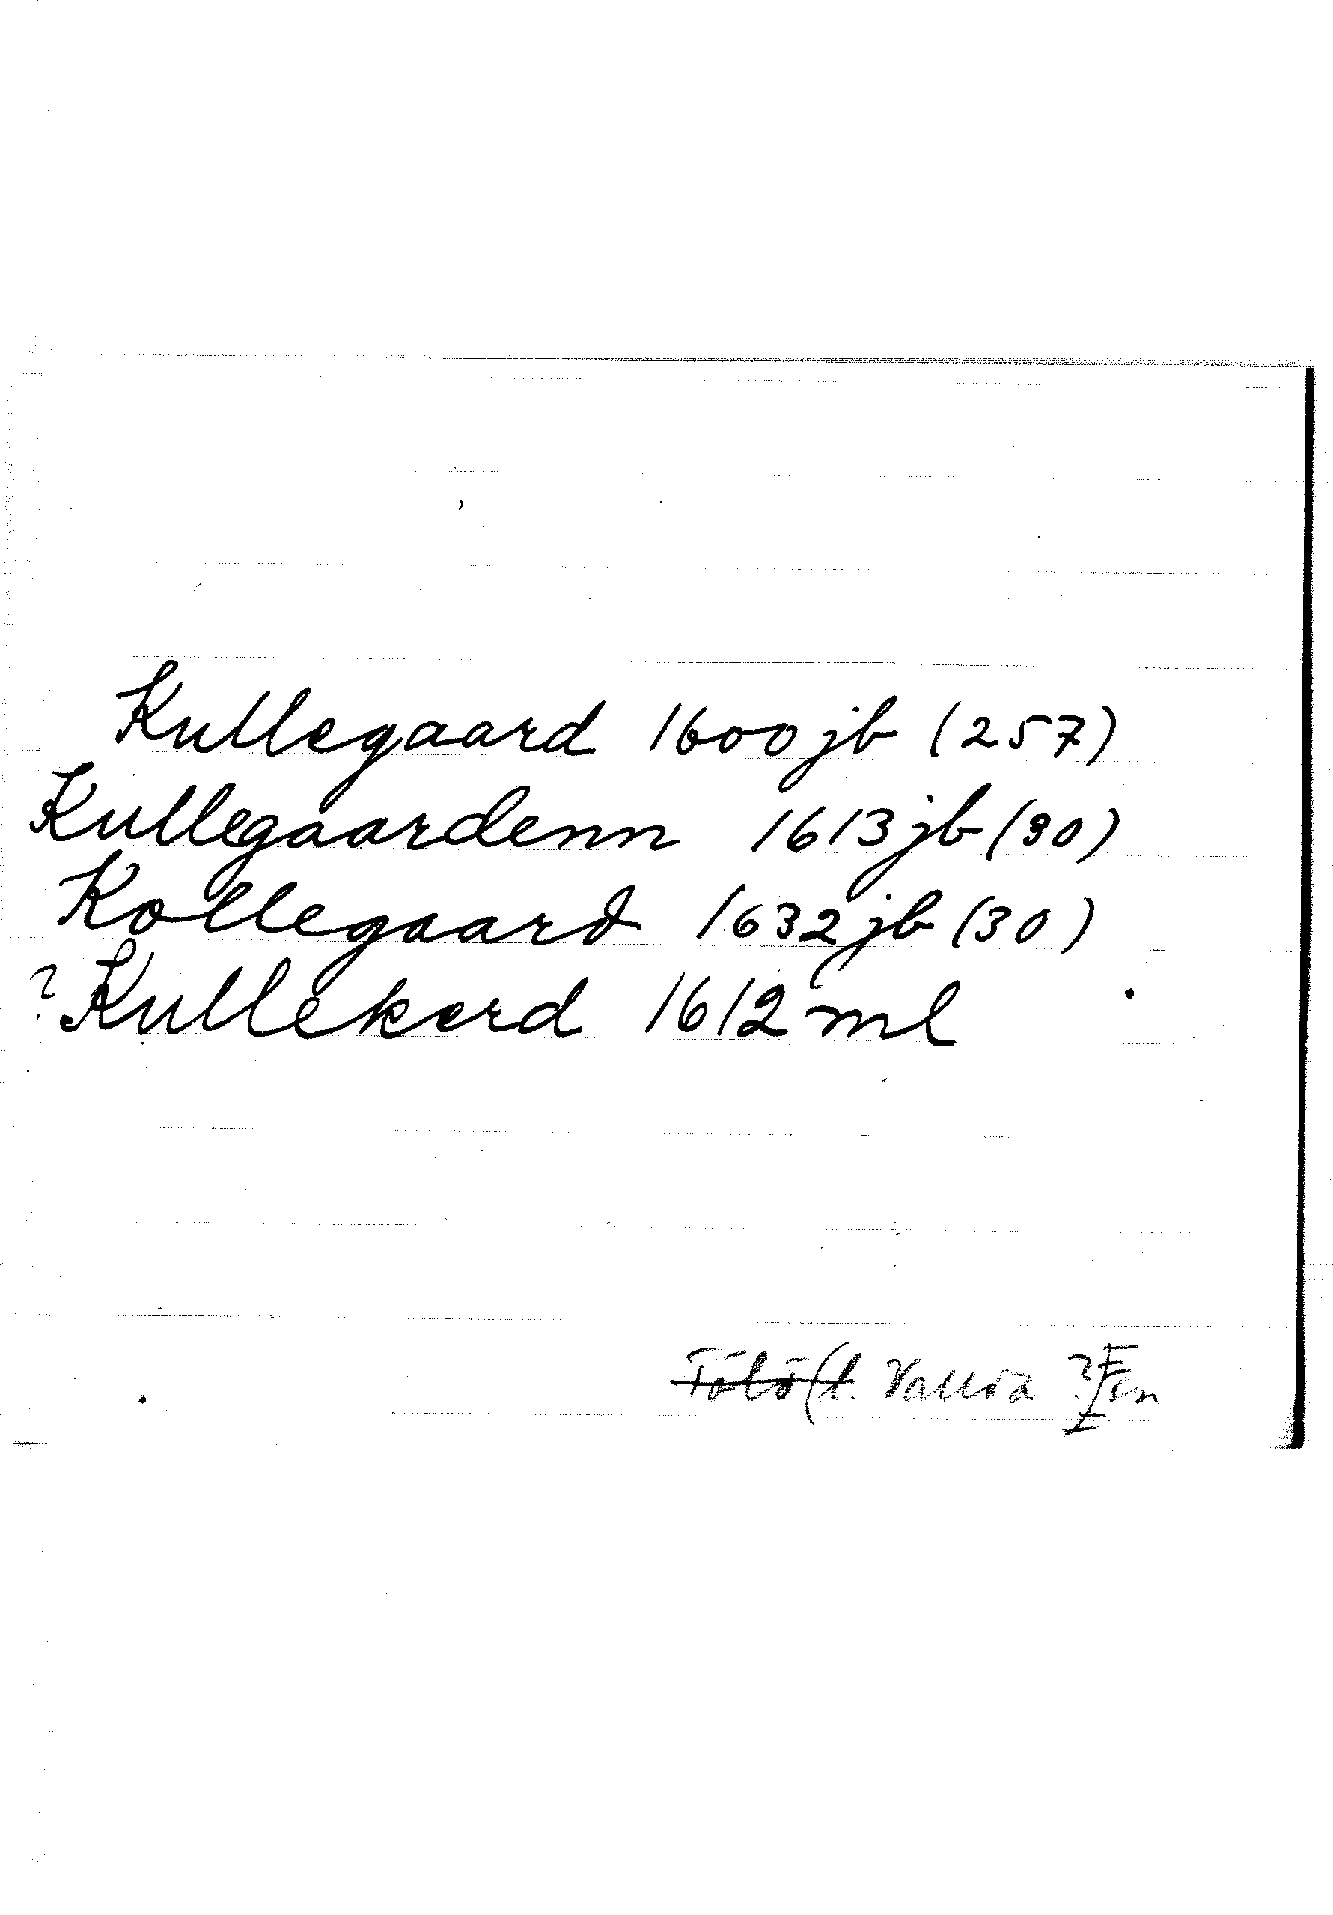 Kullegaard 1600 jb (257)
Kullegaardenn 1613 jb (90)
Kollegaard 1632 jb (30)
? Kullekerd 1612 ml
Tölö (l. Vallda ?